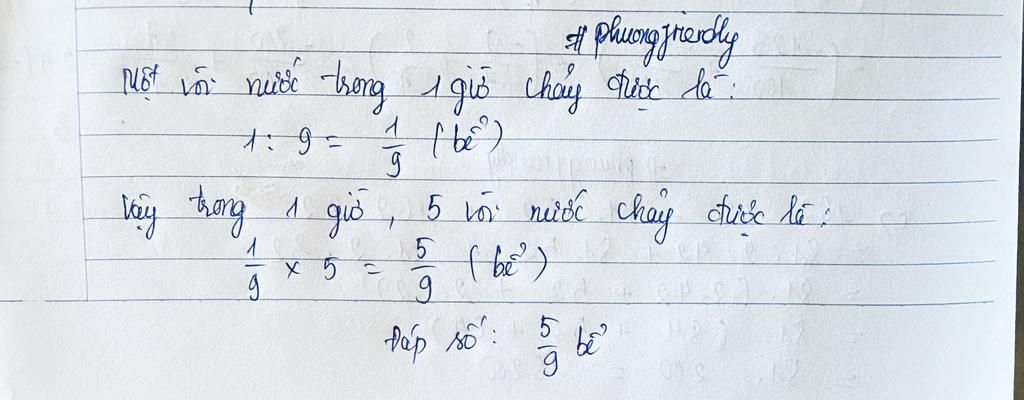 # phuongfriendly
Một vòi nước trong 1 giờ chảy được là:
1 : 9 = 1/9 (bể)
Vậy trong 1 giờ, 5 vòi nước chảy được là:
1/9 × 5 = 5/9 (bể)
Đáp số: 5/9 bể